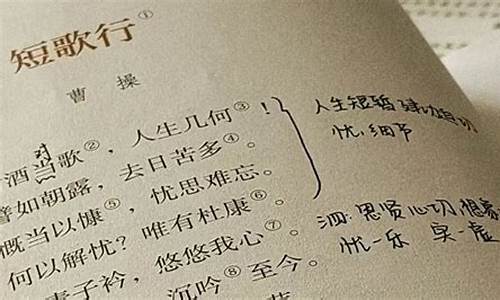 短歌行①
曹操
酒当对歌②，人生几何③！
譬如朝露，去日苦多④。
慨当以慷⑤，忧思难忘。
何以解忧？唯有杜康⑥。
青子衿，悠悠我心⑦。
沉吟⑧至今。
人生短暂 建功
忧：细节
思贤心切
忧－乐 实－虚